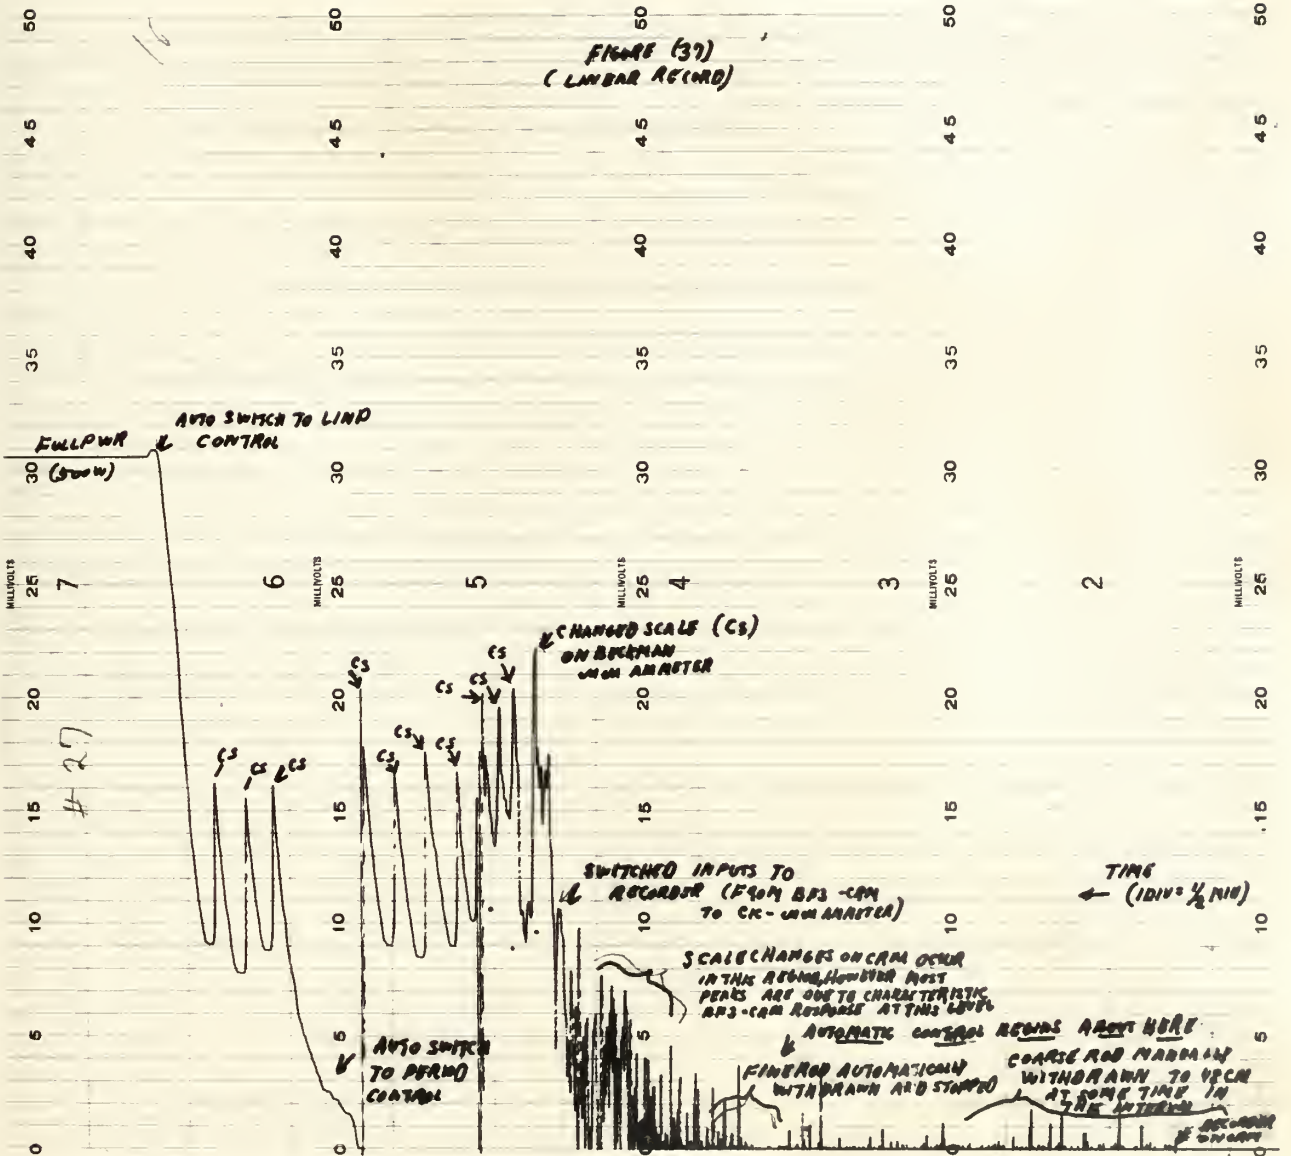 50 50 50 50 50
FIGURE (37)
(LINEAR RECORD)
45 45 45 45 45
40 40 40 40 40
35 35 35 35 35
AUTO SWITCH TO LIN P
CONTROL
FULL PWR
(500W)
30 30 30 30 30
MILLIVOLTS MILLIVOLTS MILLIVOLTS MILLIVOLTS MILLIVOLTS
25 25 25 25 25
7 6 5 4 3 2
CHANGED SCALE (CS)
ON BECKMAN
AMMETER
CS CS CS CS
20 20 20 20 20
# 27
CS CS CS
CS CS CS
15 15 15 15 15
SWITCHED INPUTS TO
RECORDER (FROM BF3-CRM
TO CIC- AMMETER)
TIME
← (1 DIV = 1/2 MIN)
10 10 10 10 10
SCALE CHANGES ON CRM OCCUR
IN THIS REGION, HOWEVER MOST
PEAKS ARE DUE TO CHARACTERISTIC
BF3-CRM RESPONSE AT THIS LEVEL
AUTOMATIC CONTROL BEGINS ABOUT HERE
5 5 5 5 5
AUTO SWITCH
TO PERIOD
CONTROL
FINE ROD AUTOMATICALLY
WITHDRAWN AND STOPPED
COARSE ROD MANUALLY
WITHDRAWN TO 48CM
AT SOME TIME IN
THE INTERVAL
RECORDER
ON CRM
0 0 0 0 0